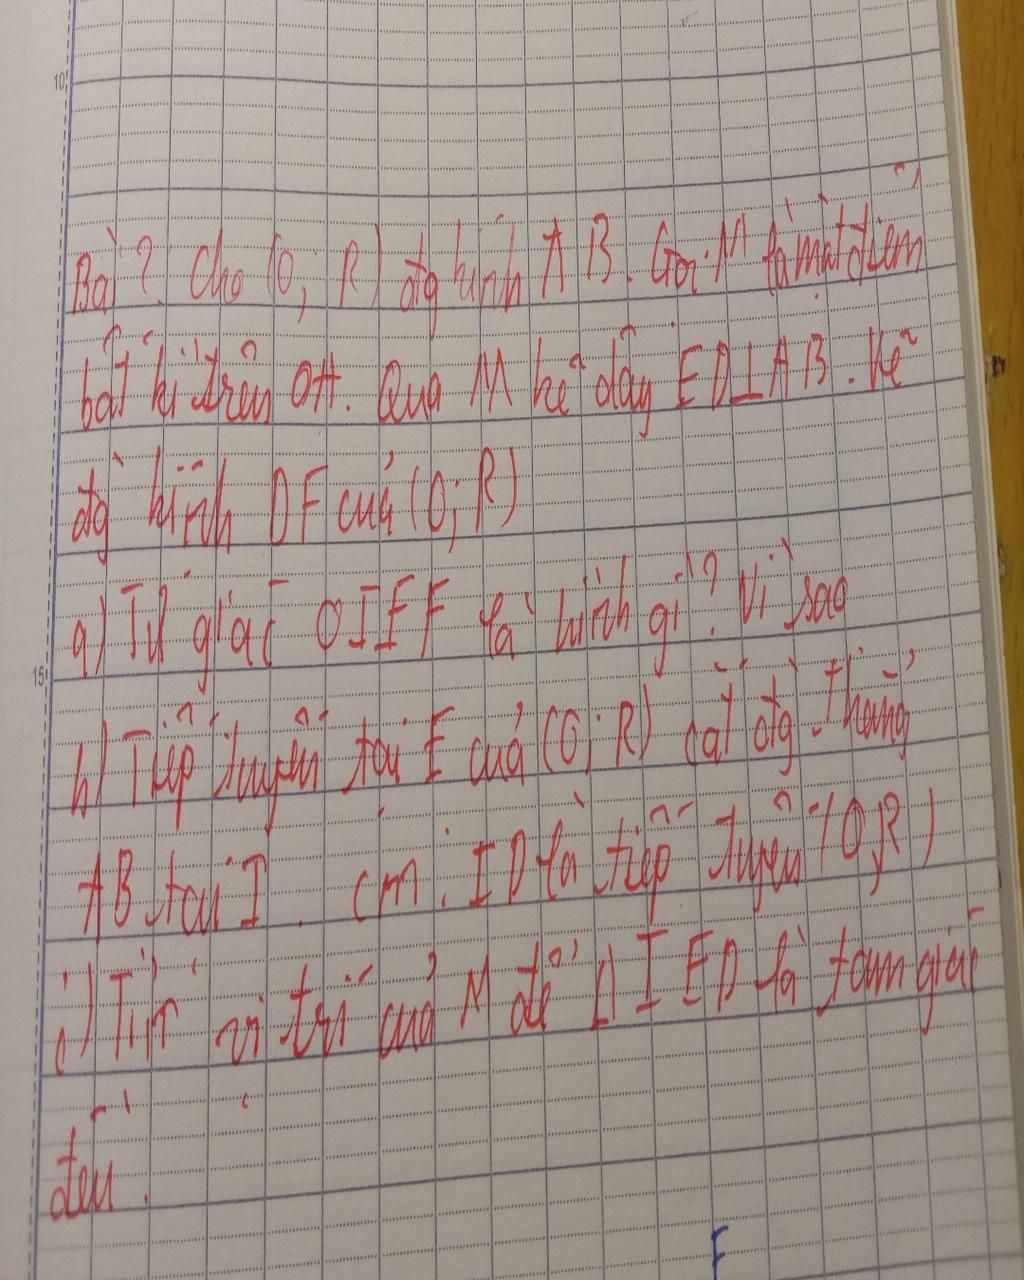 10
Bài 7. Cho (O; R) đg kính AB. Gọi M là một điểm
bất kì trên OA. Qua M kẻ dây ED⊥AB. Kẻ
đg kính DF của (O; R)
a) Tứ giác OIEF là hình gì? Vì sao
15
b) Tiếp tuyến tại E của (O; R) cắt đg thẳng
AB tại I. Cm: ID là tiếp tuyến (O, R)
c) Tìm vị trí của M để Δ IED là tam giác
đều.
F